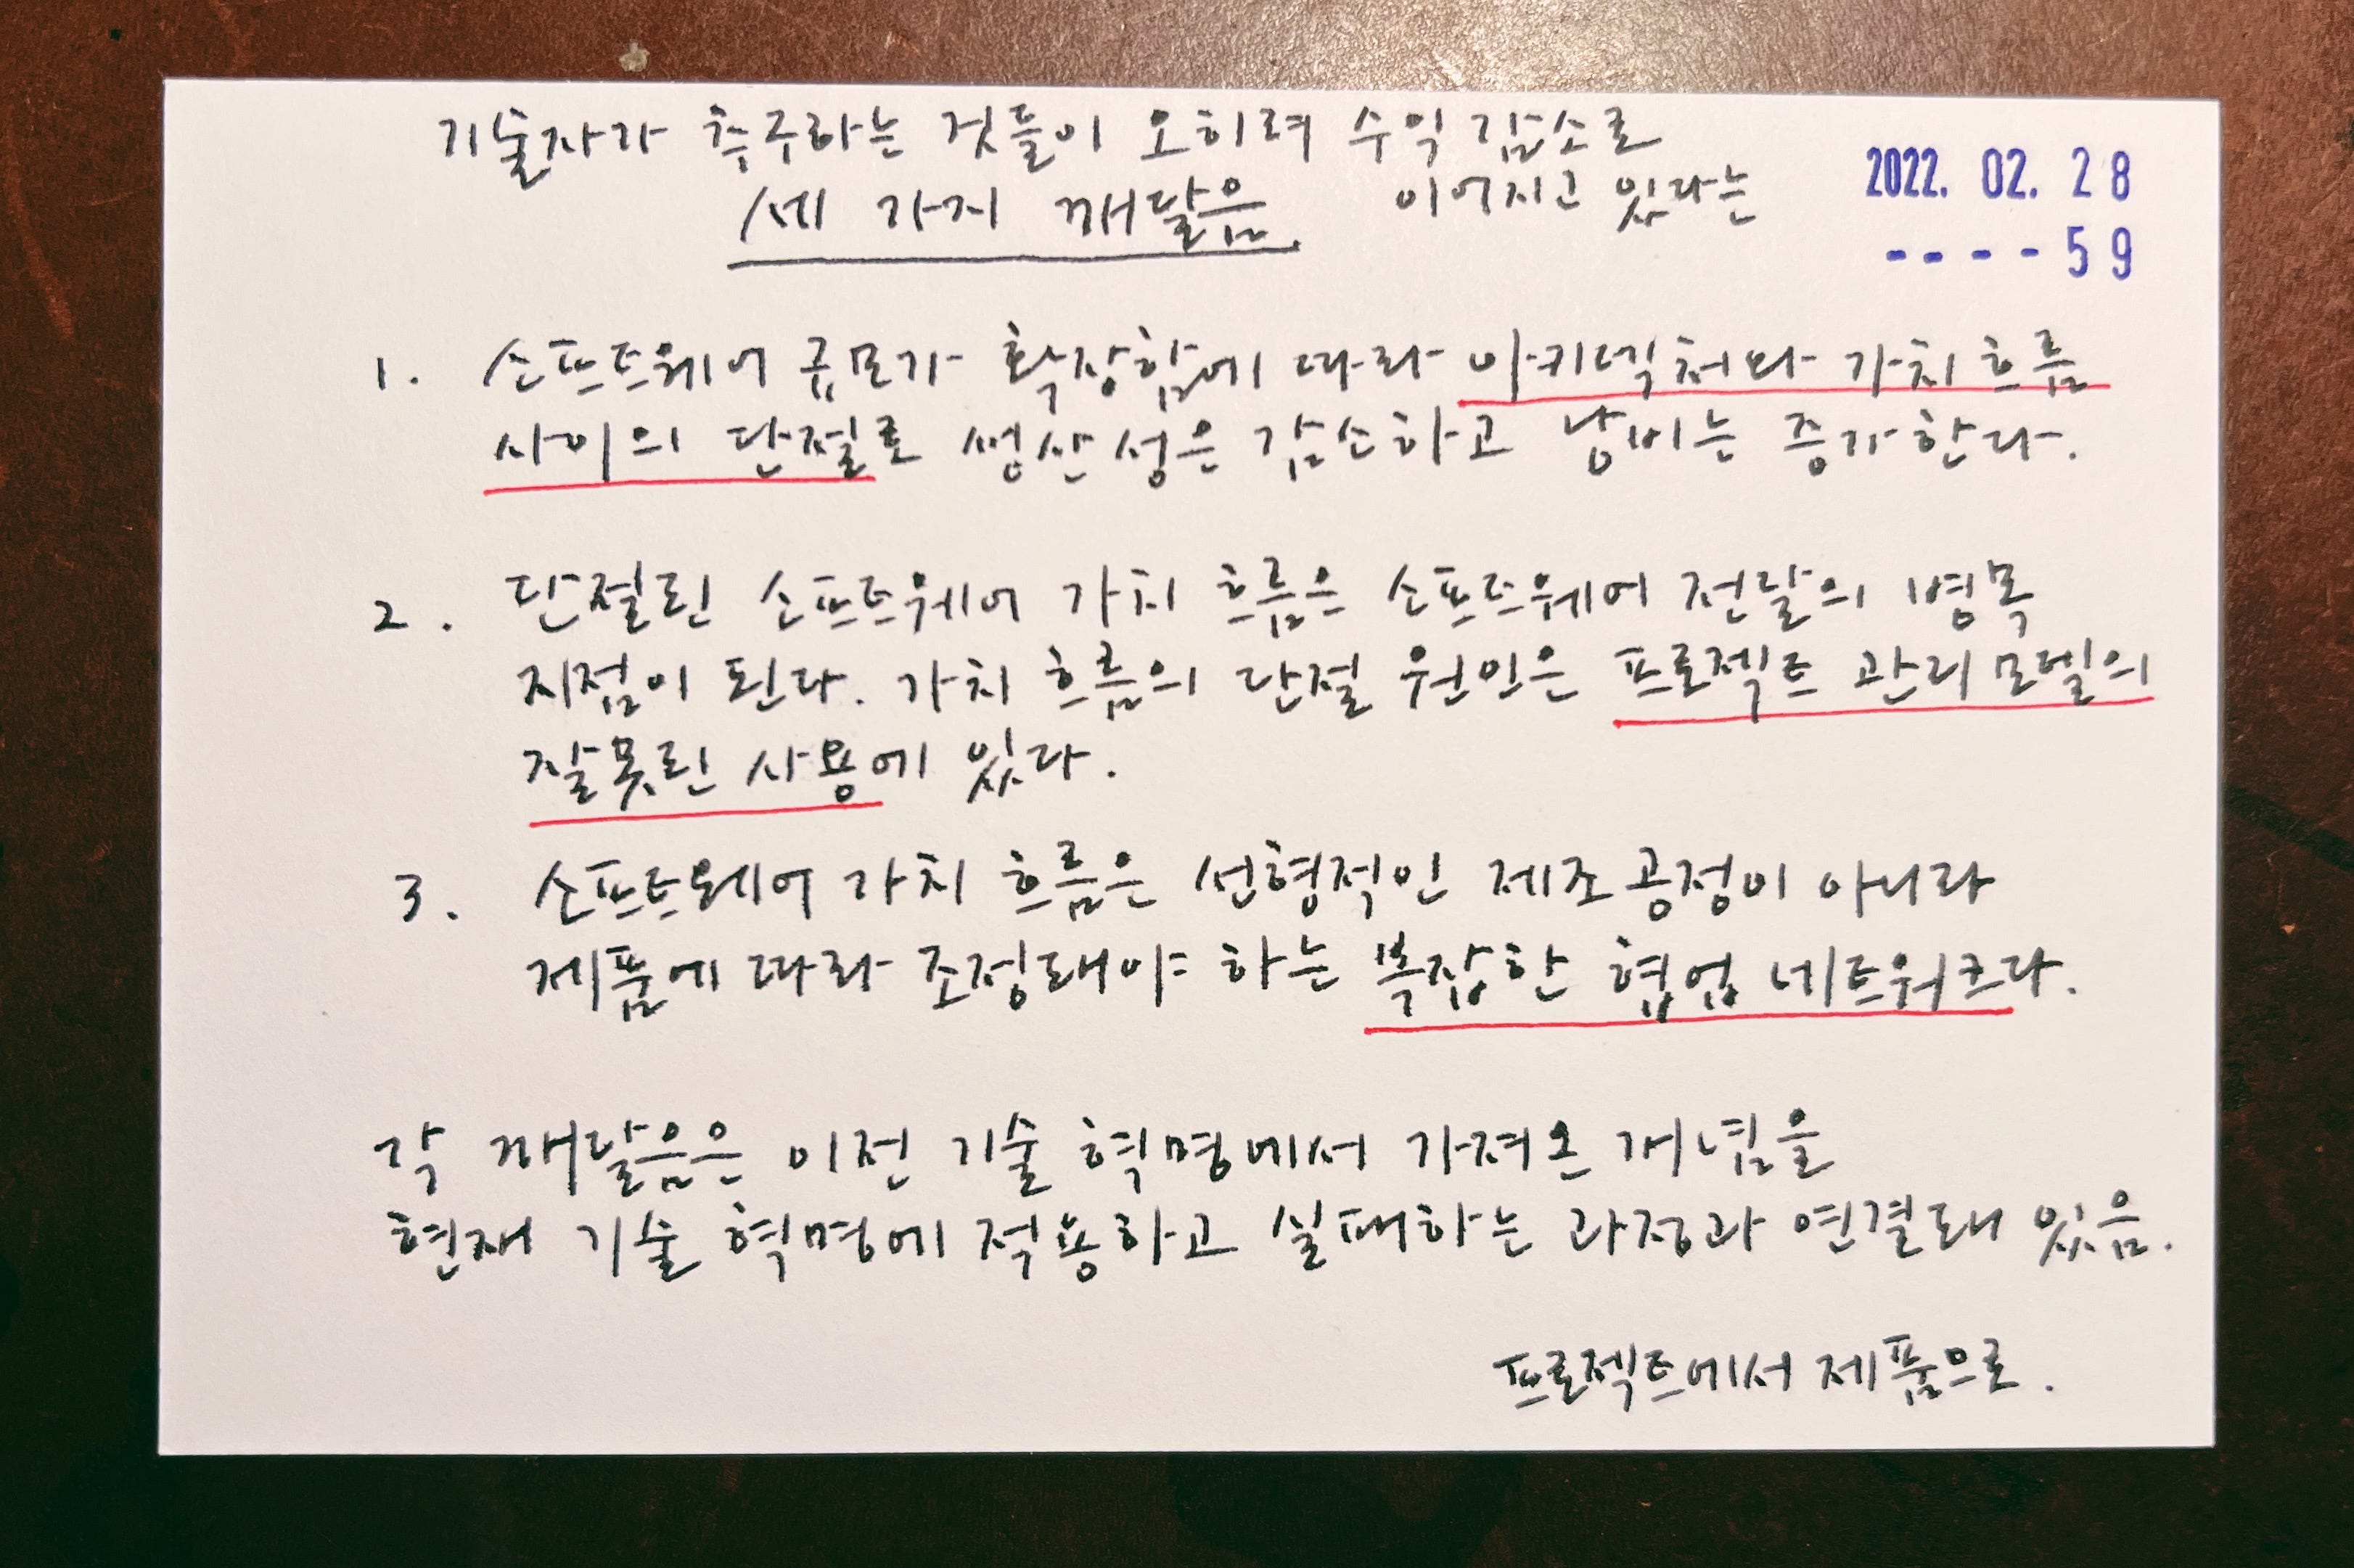 기술자가 추구하는 것들이 오히려 수익 감소로
이어지고 있다는
세 가지 깨달음.
2022. 02. 28
----59
1. 소프트웨어 규모가 확장함에 따라 아키텍처와 가치 흐름
사이의 단절로 생산성은 감소하고 낭비는 증가한다.
2. 단절된 소프트웨어 가치 흐름은 소프트웨어 전달의 병목
지점이 된다. 가치 흐름의 단절 원인은 프로젝트 관리 모델의
잘못된 사용에 있다.
3. 소프트웨어 가치 흐름은 선형적인 제조 공정이 아니라
제품에 따라 조정돼야 하는 복잡한 협업 네트워크다.
각 깨달음은 이전 기술 혁명에서 가져온 개념을
현재 기술 혁명에 적용하고 실패하는 과정과 연결돼 있음.
프로젝트에서 제품으로.